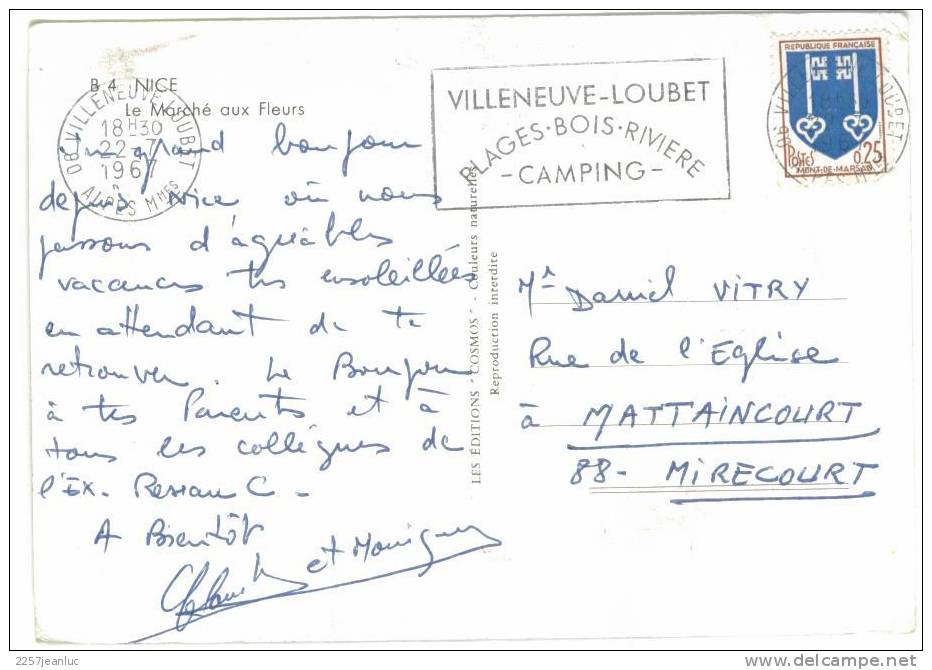 B 4 NICE
Le Marché aux Fleurs
06 VILLENEUVE-LOUBET
18H30
22-7
1967
ALPES MMES
VILLENEUVE-LOUBET
PLAGES·BOIS·RIVIERE
-CAMPING-
REPUBLIQUE FRANÇAISE
POSTES 0,25
MONT-DE-MARSAN
Un grand bonjour
depuis Nice où nous
passons d'agréables
vacances très ensoleillées
en attendant de te
retrouver. Le Bonjour
à tes Parents et à
tous les collègues de
l'Ex. Reseau C.
A Bientôt
et Monique
LES ÉDITIONS "COSMOS" - Couleurs naturelles
Reproduction interdite
Mr Daniel VITRY
Rue de l'Eglise
à MATTAINCOURT
88- MIRECOURT
2257jeanluc
delcampe.net